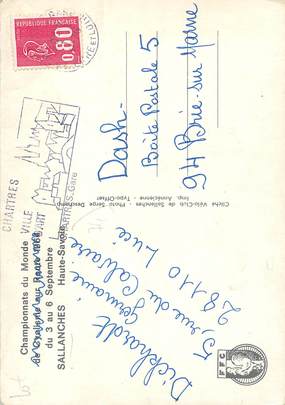 Championnats du Monde
de Cyclisme sur Route 1964
du 3 au 6 Septembre
SALLANCHES Haute-Savoie
Dickhardt
Germaine
5 rue du Calvaire
28110 Lucé
Cliché Vélo-Club de Sallanches - Photo Serge Deschamp
Imp. Annécienne - Type-Offset
RÉPUBLIQUE FRANÇAISE
0,80
CHARTRES
VILLE
D'ART
CHARTRES-Gare
Dash-
Boîte Postale 5
94 Brie-sur-Marne
FFC